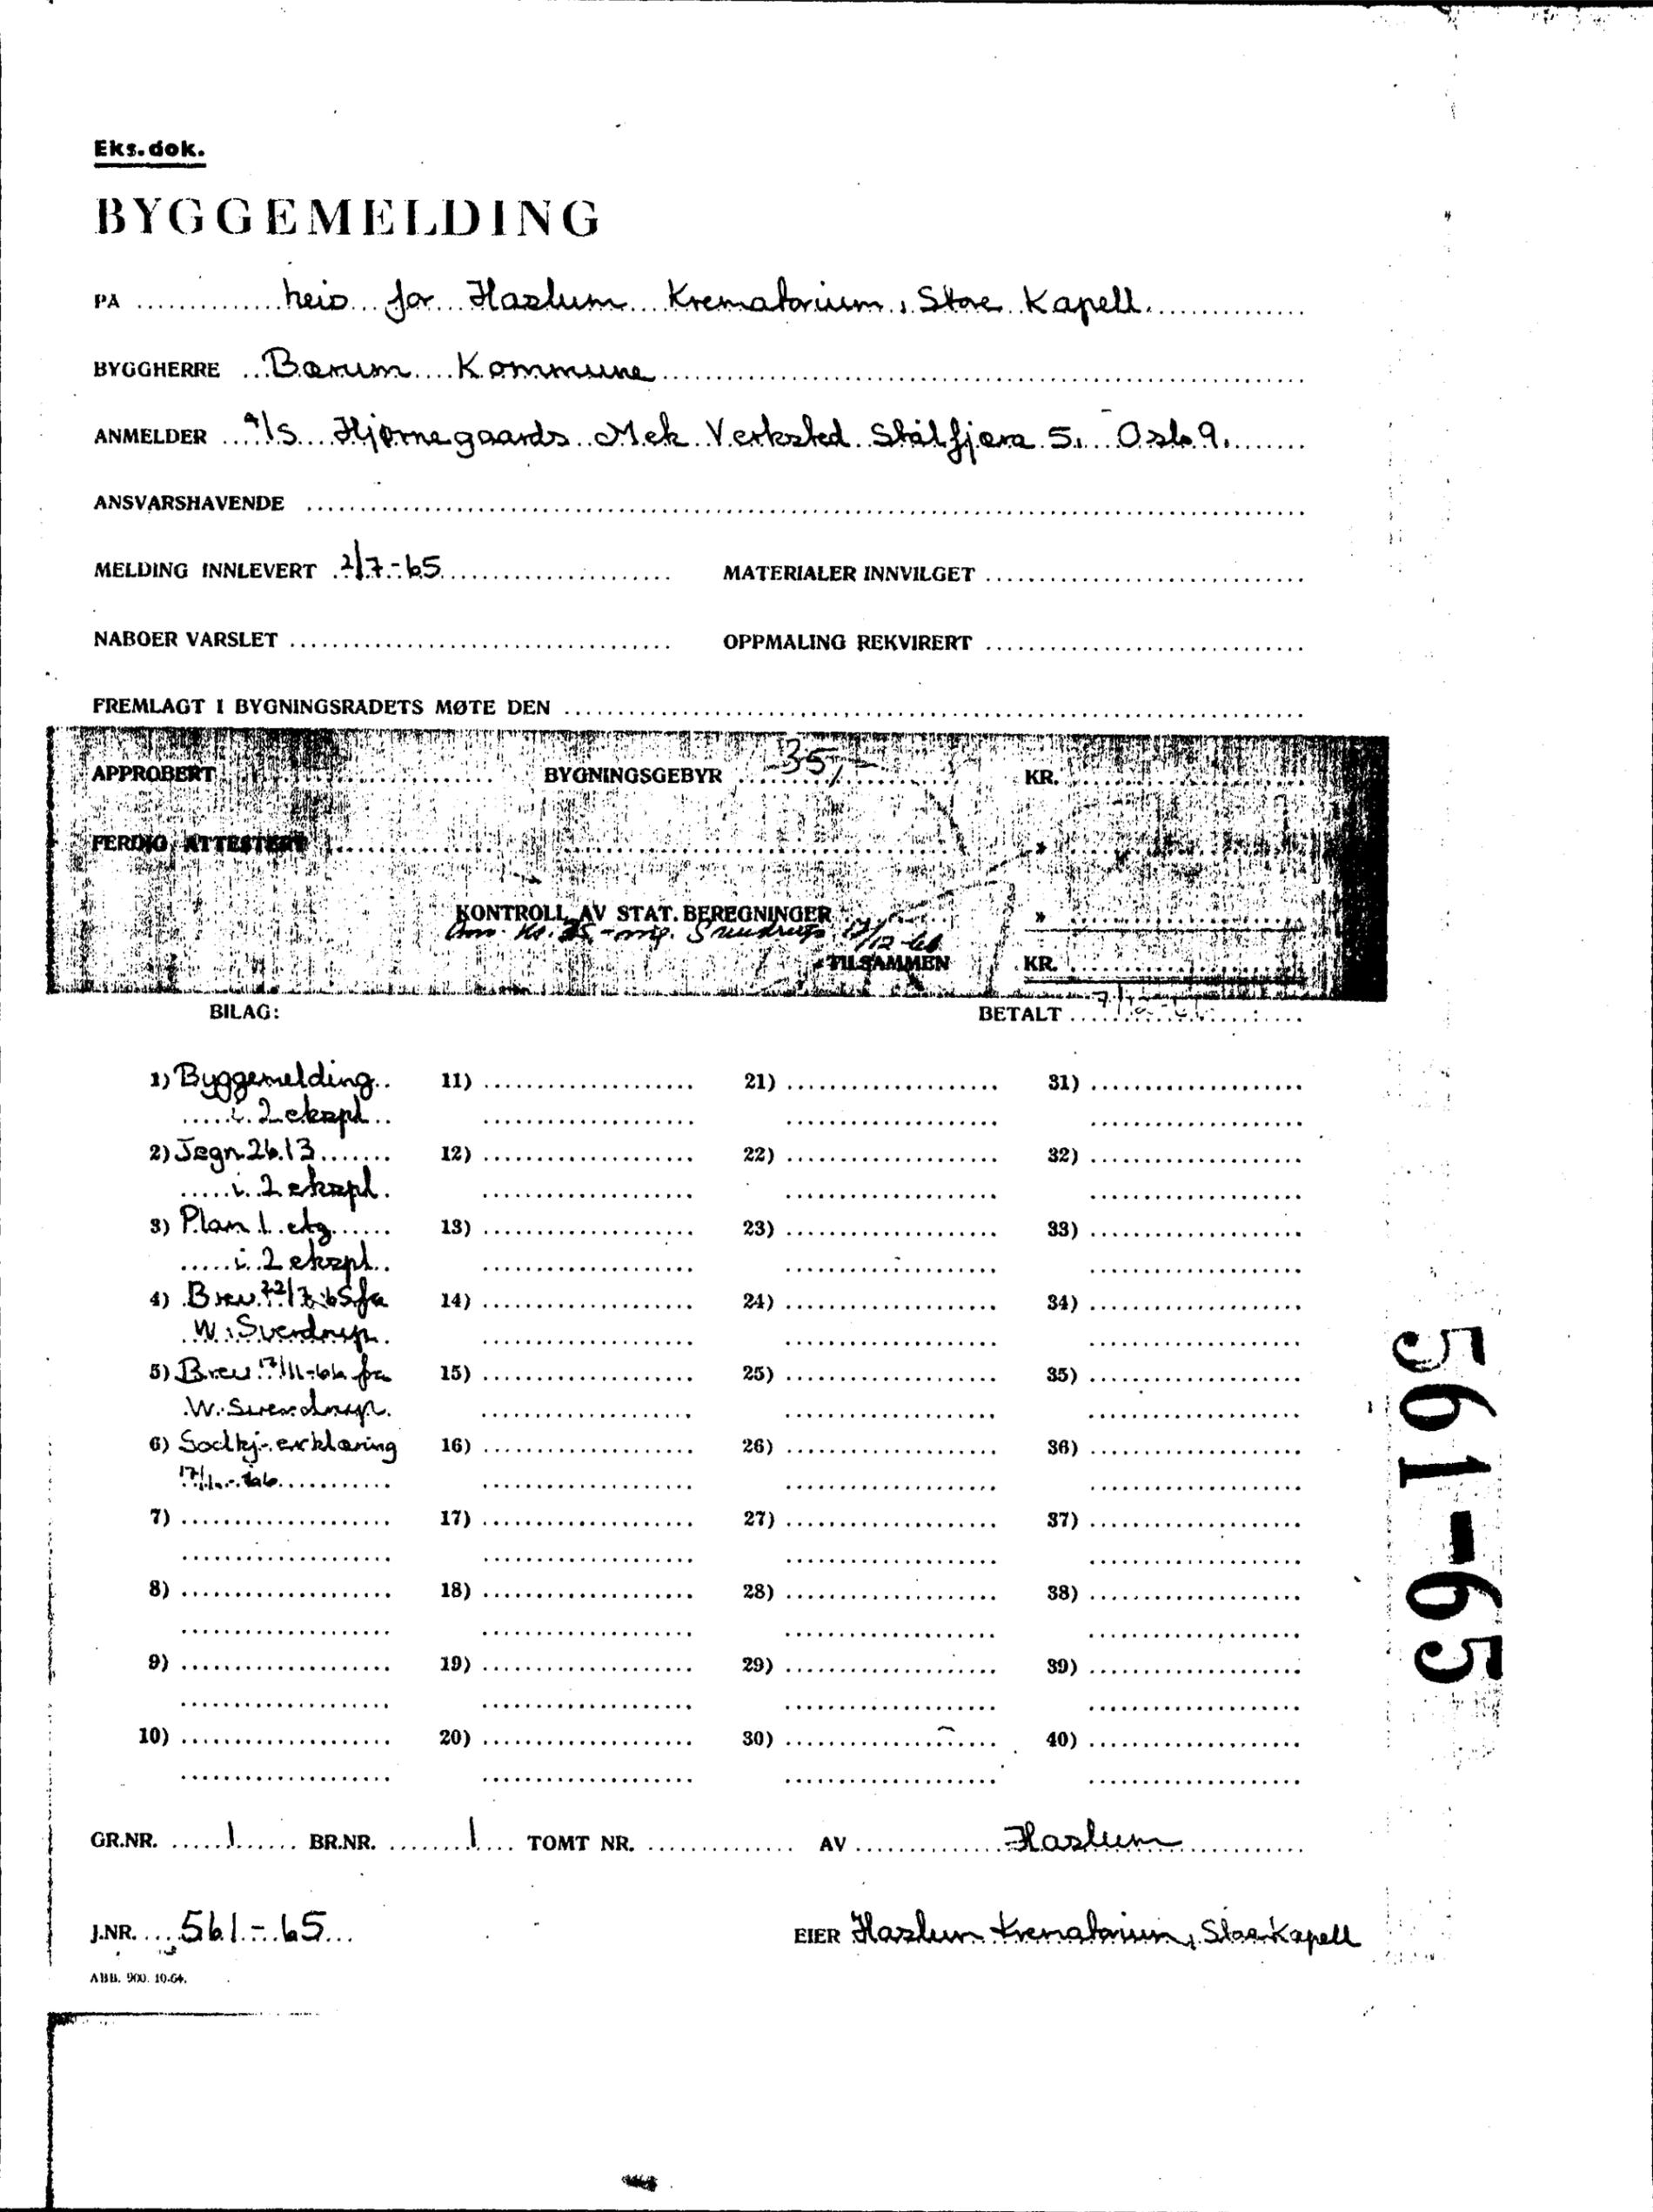 Eks.dok.
BYGGEMELDING
PA heis for Haslum Krematorium, Store Kapell.
BYGGHERRE Bærum Kommune
ANMELDER A/S Hjørnegaards Mek Verksted Stålfjæra 5. Oslo 9.
ANSVARSHAVENDE
MELDING INNLEVERT 2/7-65 MATERIALER INNVILGET
NABOER VARSLET OPPMALING REKVIRERT
FREMLAGT I BYGNINGSRADETS MØTE DEN
APPROBERT BYGNINGSGEBYR 35,- KR.
FERDIG ATTESTERT »
KONTROLL AV STAT. BEREGNINGER »
17/12-66
TILSAMMEN KR.
BILAG: BETALT
1) Byggemelding 11) 21) 31)
i 2 ekspl
2) Tegn 2613 12) 22) 32)
i 2 ekspl.
3) Plan 1. etg 13) 23) 33)
i 2 ekspl.
4) Brev 22/7-65 fra 14) 24) 34)
W. Sverdrup.
5) Brev 17/11-66 fra 15) 25) 35)
W. Sverdrup.
6) Godkj.erklæring 16) 26) 36)
7) 17) 27) 37)
8) 18) 28) 38)
9) 19) 29) 39)
10) 20) 30) 40)
GR.NR. 1 BR.NR. 1 TOMT NR. AV Haslum
J.NR. 561-65 EIER Haslum Krematorium, Store Kapell
ABB. 900. 10-64.
561-65